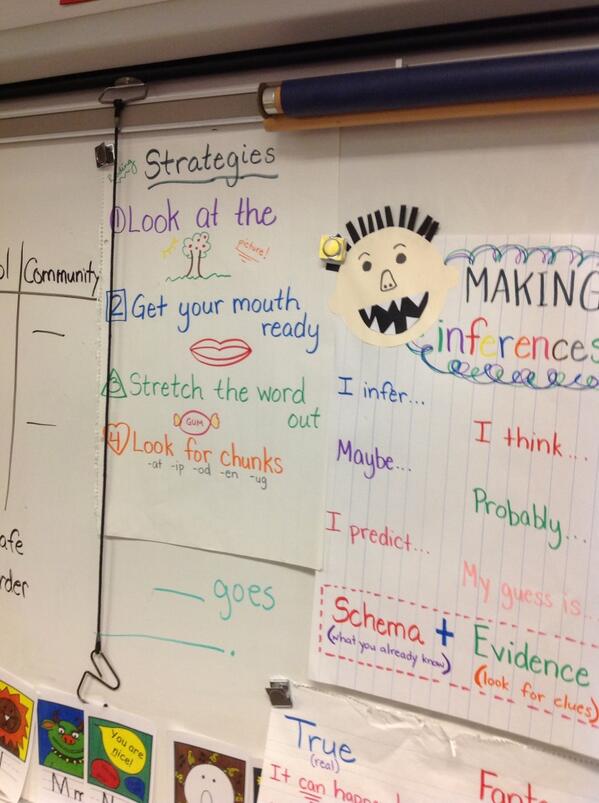 Community
Reading
Strategies
1 Look at the
picture!
2 Get your mouth
ready
3 Stretch the word
out
GUM
4 Look for chunks
-at -ip -od -en -ug
___ goes
___.
MAKING
inferences
I infer...
I think...
Maybe...
Probably...
I predict...
My guess is...
Schema + Evidence
(what you already know)
(look for clues)
True
(real)
It can
You are
nice!